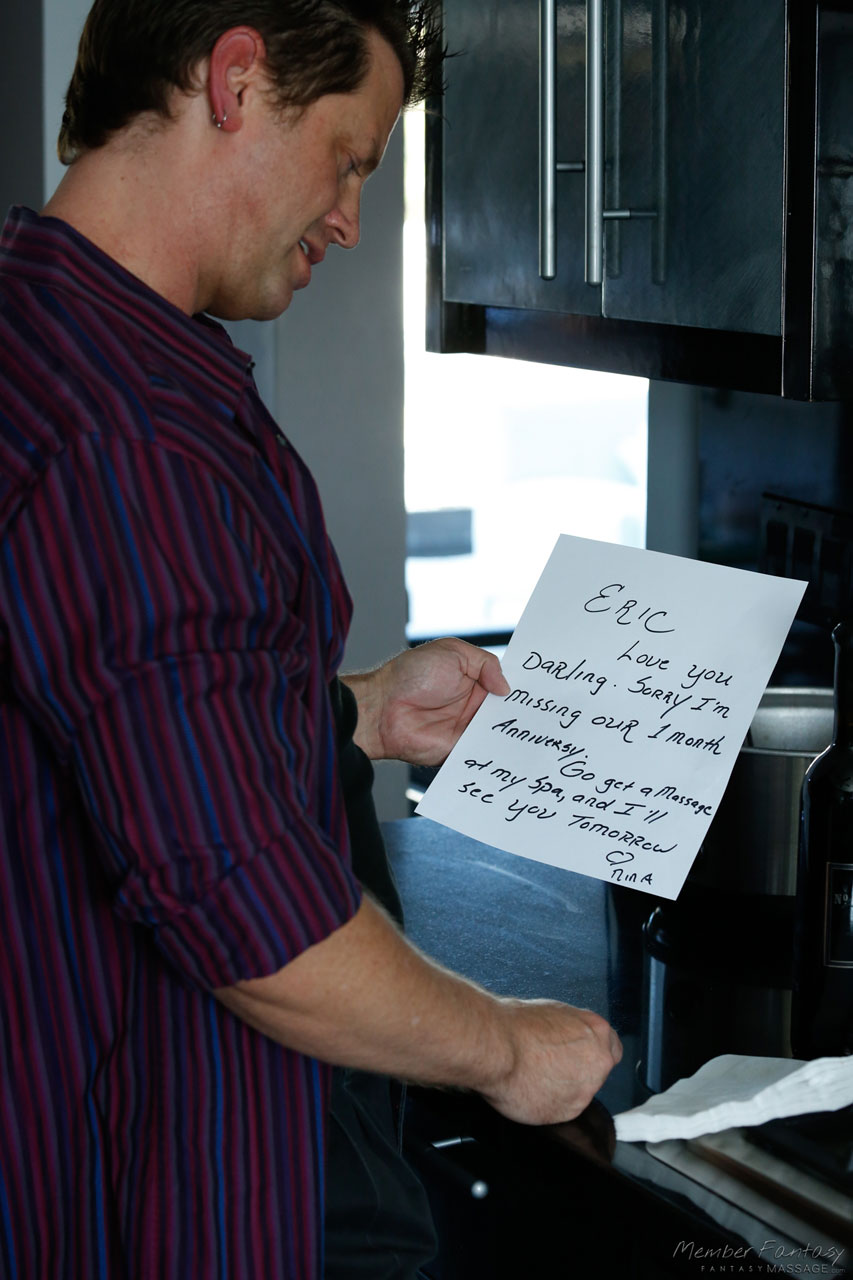 ERIC
Love you
Darling. Sorry I'm
missing our 1 month
Anniversy. Go get a massage
at my Spa, and I'll
see you Tomorrow
♡
NINA
Nº
Member Fantasy
FANTASYMASSAGE.com